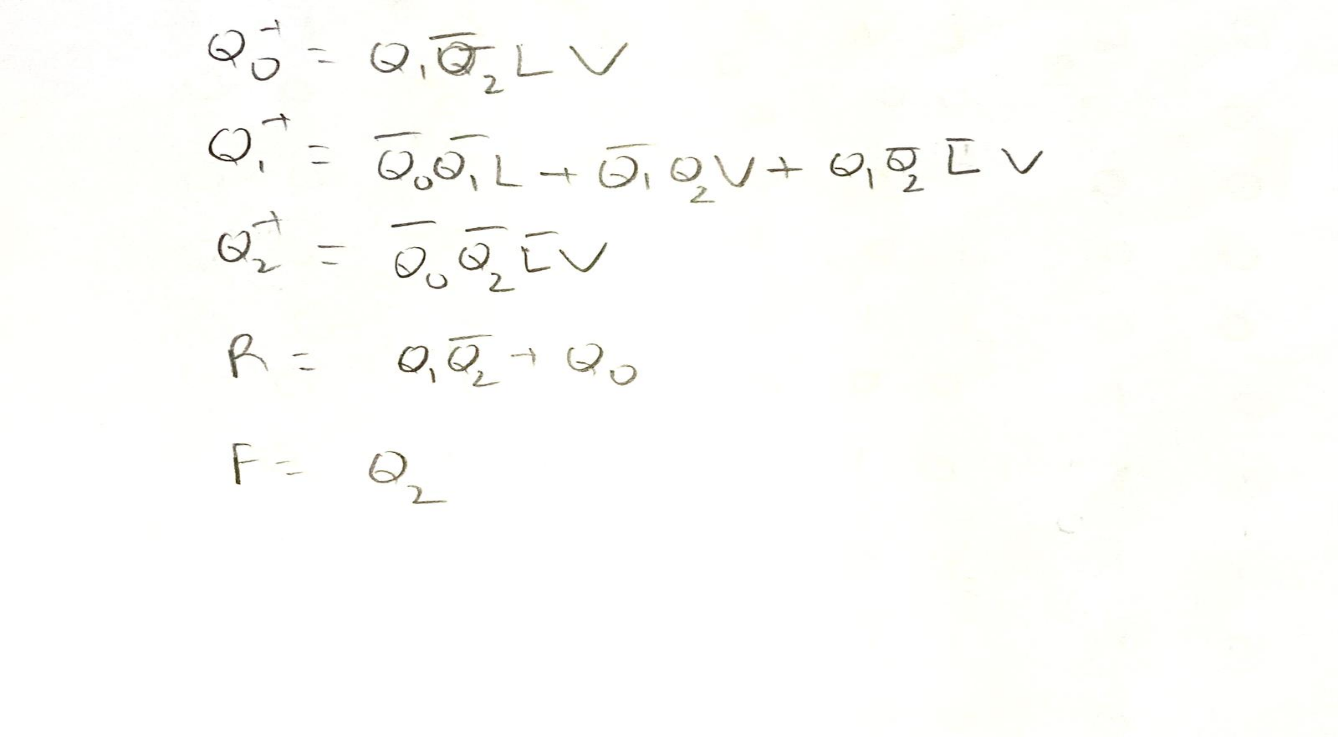 Q₀⁺ = Q₁Q̅₂LV
Q₁⁺ = Q̅₀Q̅₁L + Q̅₁Q₂V + Q₁Q̅₂L̅V
Q₂⁺ = Q̅₀Q̅₂L̅V
R = Q₁Q̅₂ + Q₀
F = Q₂